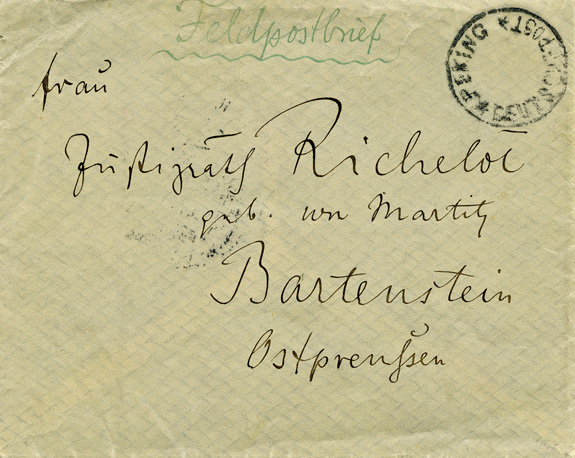 Feldpostbrief
PEKING * DEUTSCHE POST *
Frau
Justizräth Richelot
geb. von Martitz
Bartenstein
Ostpreußen